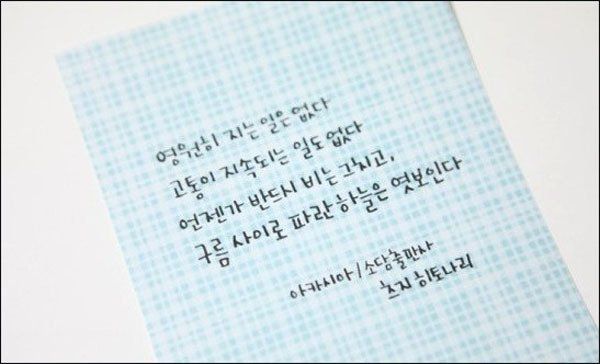 영원히 지는 일은 없다
고통이 지속되는 일도 없다
언젠가 반드시 비는 그치고,
구름 사이로 파란 하늘은 엿보인다
아카시아/소담출판사
츠지 히토나리